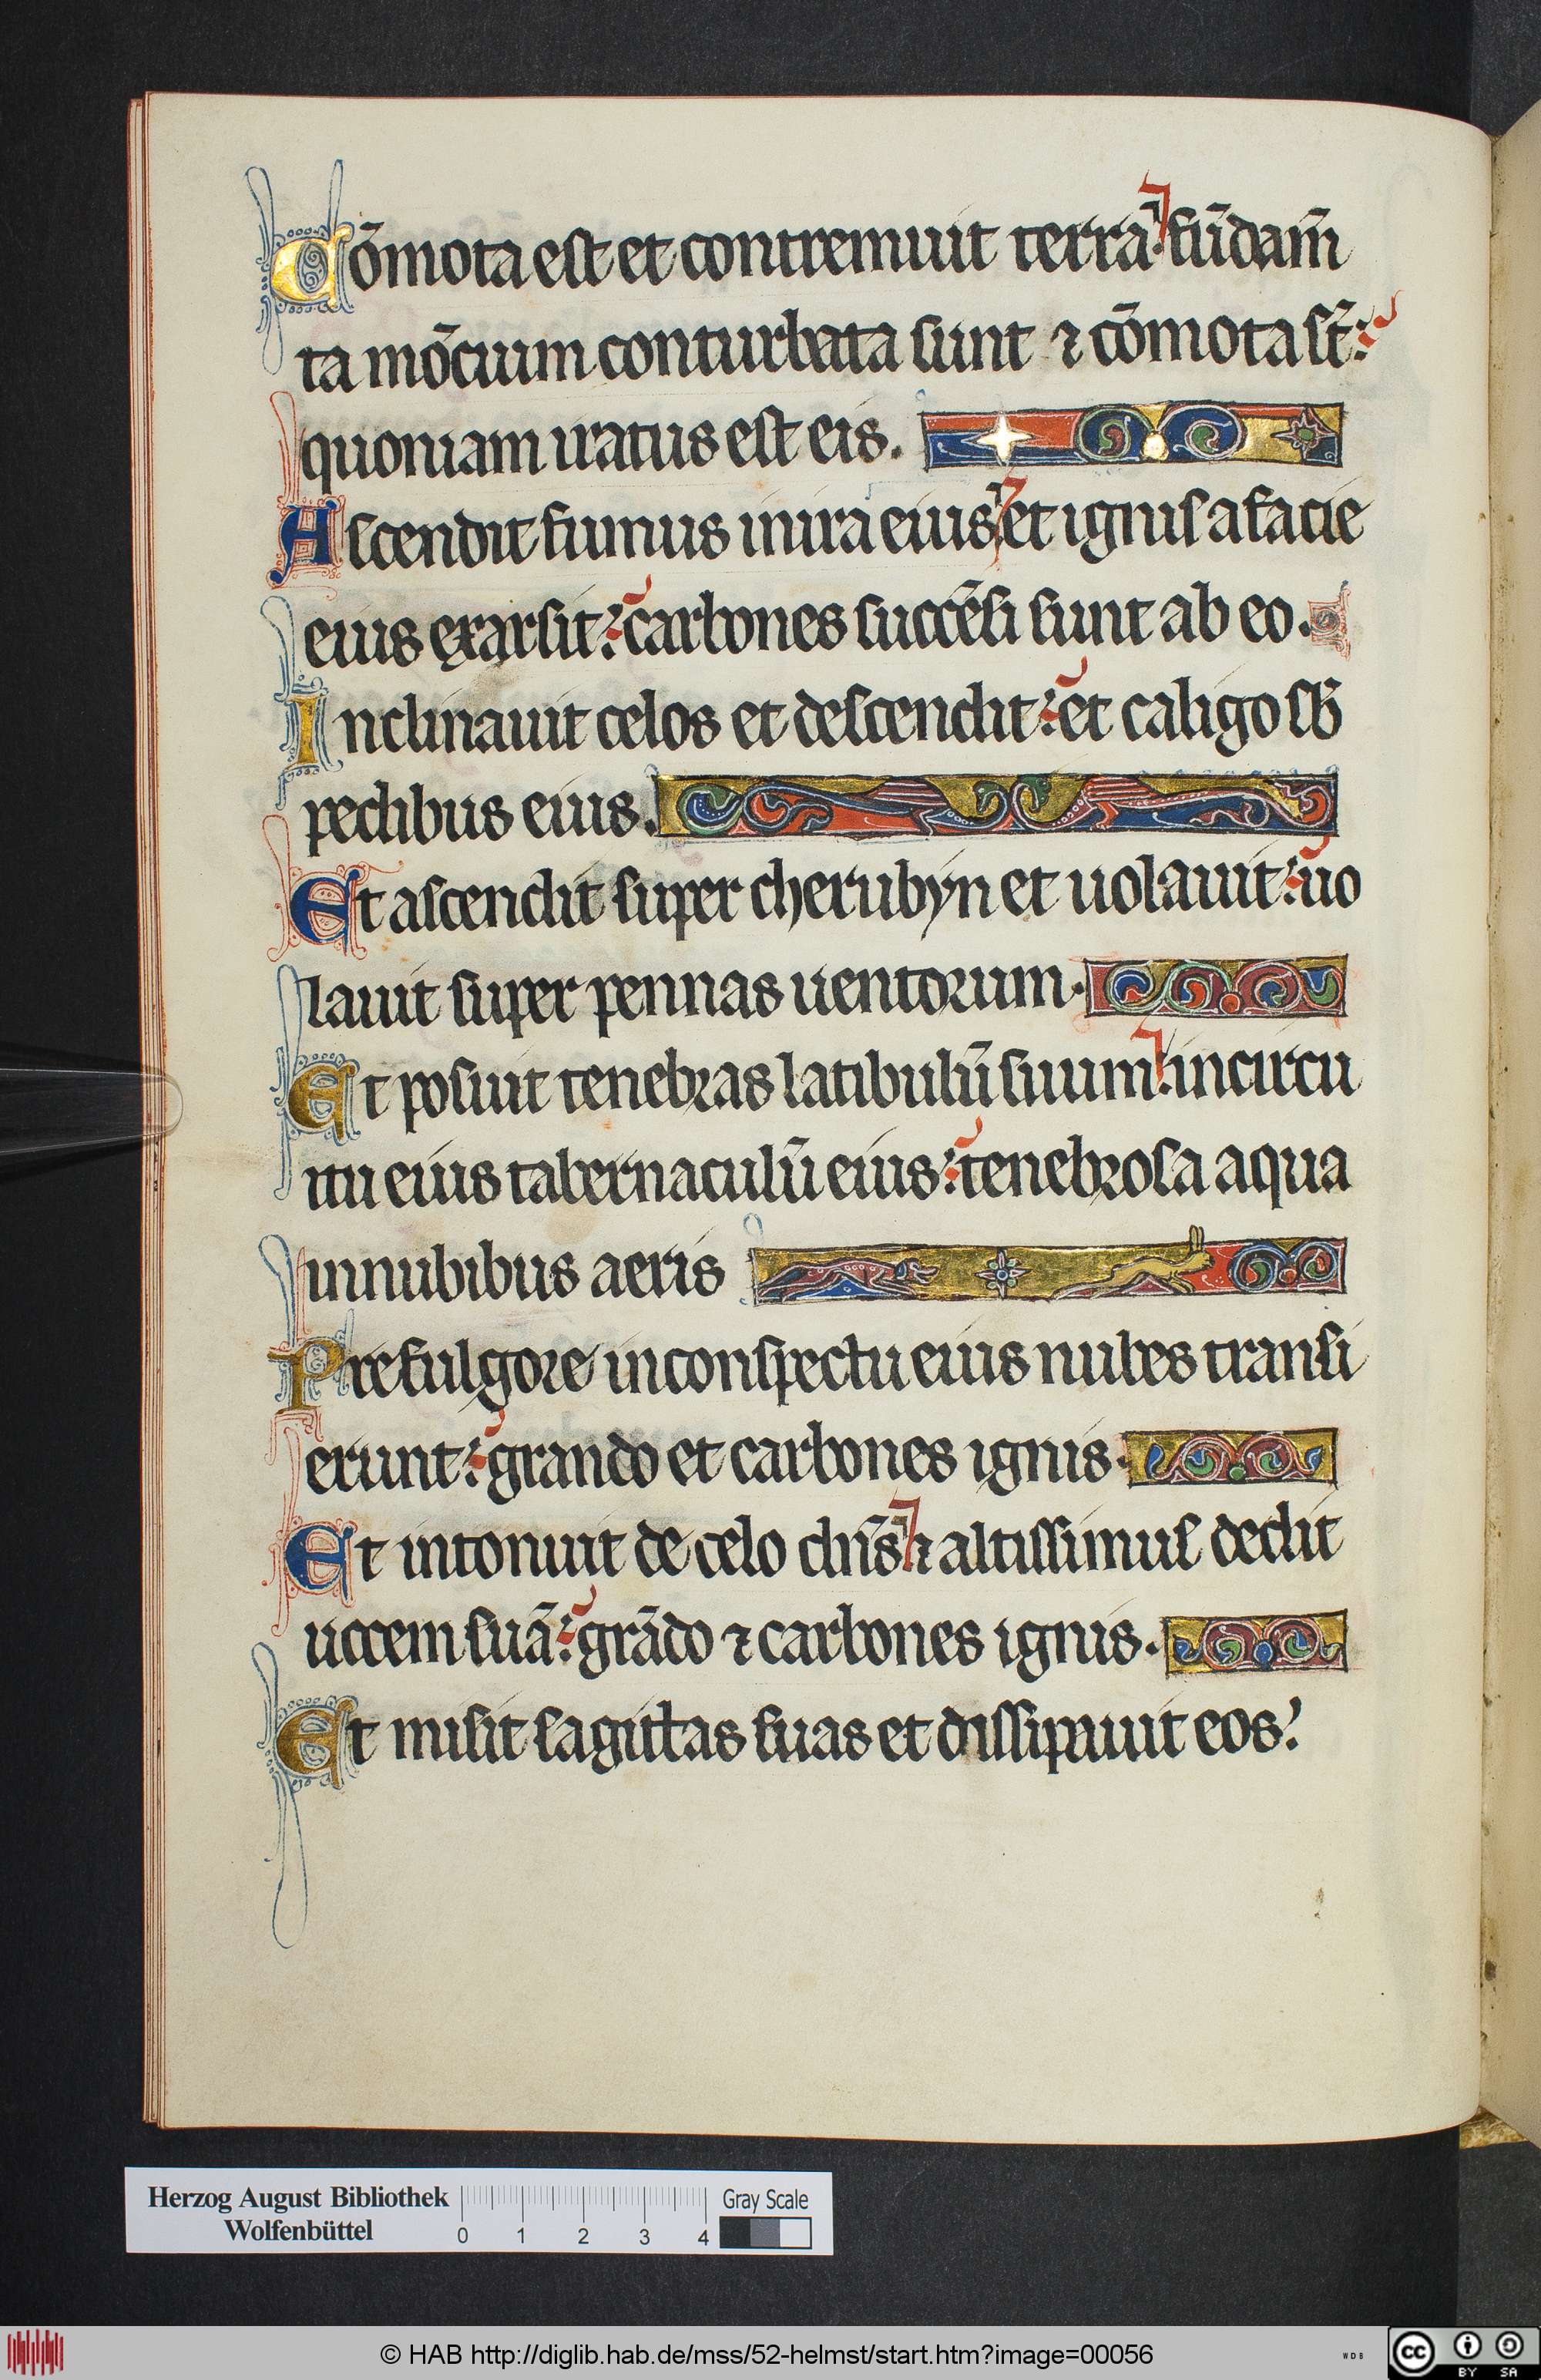 Cōmota est et contremuit terra fūdam̄
ta mōcium conturbata sunt ⁊ cōmota st̄:
quoniam iratus est eis.
Ascendit fumus in ira eius et ignis a facie
eius exarsit: carbones succēsi sunt ab eo.
Inclinauit celos et descendit: et caligo sb̄
pedibus eius.
Et ascendit super cherubyn et uolauit: uo
lauit super pennas uentorum.
Et posuit tenebras latibulū suum. in circu
itu eius tabernaculū eius: tenebrosa aqua
in nubibus aeris
Prefulgore in conspectu eius nubes transi
erunt: grando et carbones ignis.
Et intonuit de celo dn̄s ⁊ altissimus dedit
uocem suā: grādo ⁊ carbones ignis.
Et misit sagittas suas et dissipauit eos:
Herzog August Bibliothek
Wolfenbüttel
0 1 2 3 4
Gray Scale
© HAB http://diglib.hab.de/mss/52-helmst/start.htm?image=00056
WDB
cc BY SA